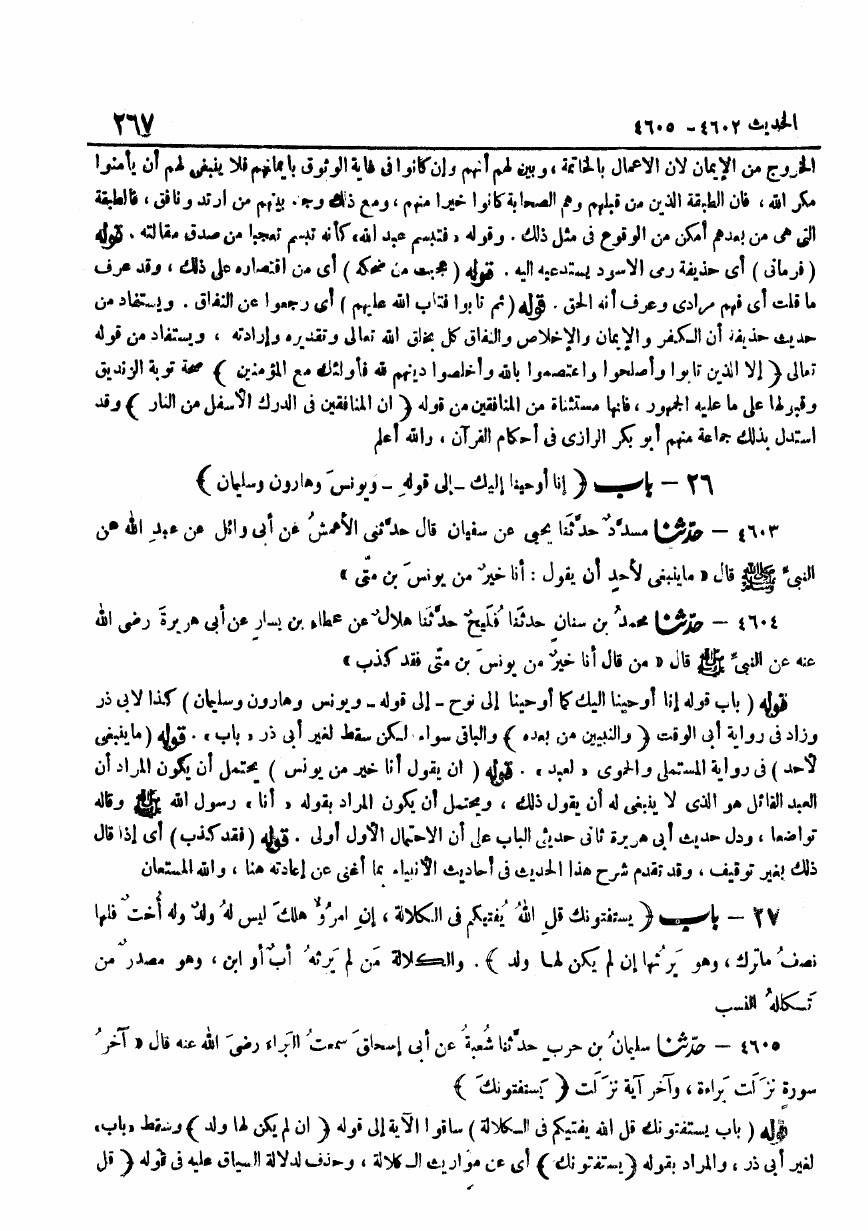 الحديث ٤٦٠٢ - ٤٦٠٥ ٢٦٧
الخروج من الإيمان لان الاعمال بالخاتمة ، وبين لهم أنهم وإن كانوا فى غاية الوثوق بايمانهم فلا ينبغى لهم أن يأمنوا
مكر الله ، فان الطبقة الذين من قبلهم وهم الصحابة كانوا خيرا منهم ، ومع ذلك وجد بينهم من ارتد ونافق ، فالطبقة
التى هى من بعدهم أمكن من الوقوع فى مثل ذلك . وقوله « فتبسم عبد الله» كأنه تبسم تعجبا من صدق مقالته . قوله
( فرمانى ) أى حذيفة رمى الاسود يستدعيه اليه . قوله ( عجبت من ضحكه ) أى من اقتصاره على ذلك ، وقد عرف
ما قلت أى فهم مرادى وعرف أنه الحق . قوله ( ثم تابوا فتاب الله عليهم ) أى رجعوا عن النفاق . ويستفاد من
حديث حذيفة أن الكفر والإيمان والإخلاص والنفاق كل بخلق الله تعالى وتقديره وإرادته ، ويستفاد من قوله
تعالى ﴿ إلا الذين تابوا وأصلحوا واعتصموا بالله وأخلصوا دينهم لله فأولئك مع المؤمنين ﴾ صحة توبة الزنديق
وقبولها على ما عليه الجمهور ، فانها مستثناة من المنافقين من قوله ﴿ ان المنافقين فى الدرك الأسفل من النار ﴾ وقد
استدل بذلك جماعة منهم أبو بكر الرازى فى أحكام القرآن ، والله أعلم
٢٦ - باب ﴿ إنا أوحينا إليك - إلى قوله - ويونسَ وهارون وسليمان ﴾
٤٦٠٣ - حدّثنا مسدَّدٌ حدَّثَنا يحيى عن سفيان قال حدَّثنى الأعمشُ عن أبى وائل عن عبدِ الله عن
النبىِّ ﷺ قال « ماينبغى لأحدٍ أن يقول : أنا خيرٌ من يونسَ بن متّى »
٤٦٠٤ - حدّثنا محمدُ بن سنان حدثنا فُلَيحٌ حدَّثَنا هلالٌ عن عطاءِ بن يسارٍ عن أبى هريرةَ رضى الله
عنه عن النبىِّ ﷺ قال « من قال أنا خيرٌ من يونسَ بن متّى فقد كذب »
قوله ( باب قوله إنا أوحينا اليك كما أوحينا إلى نوح - إلى قوله - ويونس وهارون وسليمان ) كذا لابى ذر
وزاد فى رواية أبى الوقت ﴿ والنبيين من بعده ﴾ والباقى سواء لكن سقط لغير أبى ذر « باب » . قوله ( ماينبغى
لأحد ) فى رواية المستملى والحموى « لعبد » . قوله ( ان يقول أنا خير من يونس ) يحتمل أن يكون المراد أن
العبد القائل هو الذى لا ينبغى له أن يقول ذلك ، ويحتمل أن يكون المراد بقوله « أنا » رسول الله ﷺ وقاله
تواضعا ، ودل حديث أبى هريرة ثانى حديثى الباب على أن الاحتمال الأول أولى . قوله ( فقد كذب ) أى إذا قال
ذلك بغير توقيف ، وقد تقدم شرح هذا الحديث فى أحاديث الأنبياء بما أغنى عن إعادته هنا ، والله المستعان
٢٧ - باب ﴿ يستفتونك قلِ اللهُ يُفتيكم فى الكلالة ، إنِ امرُؤٌ هلكَ ليس لهُ ولدٌ وله أُختٌ فلها
نصفُ ماترك ، وهو يَرثُها إن لم يكن لهـا ولد ﴾ . والكلالة مَن لم يَرِثهُ أبٌ أو ابن ، وهو مصدرٌ من
تَكلَّلهُ النسب
٤٦٠٥ - حدّثنا سليمانُ بن حرب حدَّثَنا شُعبةُ عن أبى إسحاقَ سمعتُ البَراء رضىَ الله عنه قال « آخرُ
سورةٍ نزَلَت بَراءة ، وآخر آية نزَلَت ﴿ يَستفتونكَ ﴾
قوله ( باب يستفتونك قل الله يفتيكم فى الكلالة ) ساقوا الآية إلى قوله ﴿ ان لم يكن لها ولد ﴾ وسقط «باب»
لغير أبى ذر ، والمراد بقوله ﴿ يستفتونك ﴾ أى عن مواريث الكلالة ، وحذف لدلالة السياق عليه فى قوله ﴿ قل